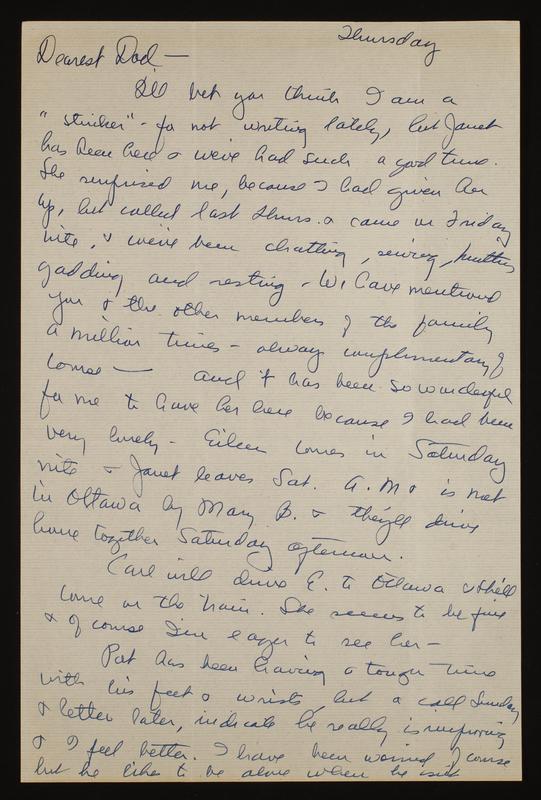 Thursday
Dearest Dad —
I'll bet you think I am a
"stinker" - for not writing lately, but Janet
has been here & we've had such a good time.
She surprised me, because I had given her
up, but called last Thurs. & came in Friday
nite, & we've been chatting, sewing,
gadding and resting - We have mentioned
you & the other members of the family
a million times - always complimentary of
course — and it has been so wonderful
for me to have her here because I had been
very lonely - Eileen comes in Saturday
nite & Janet leaves Sat. A.M & is met
in Ottawa by Mary B. & they'll drive
home together Saturday afternoon.
Carl will drive E. to Ottawa & she'll
come on the train. She seems to be fine
& of course I'm eager to see her -
Pat has been having a tough time
with his feet & wrists, but a call Sunday
& letter later, indicate he really is improving
& I feel better. I have been worried of course
but he likes to be alone when he isn't